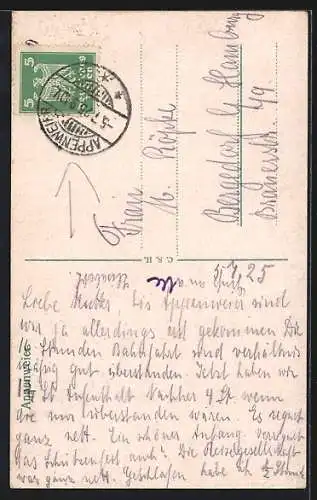 5 5
APPENWEIER
Frau
W. Röpke
Bergedorf b/ Hamburg
Brauerstr. 1/9
C. S. H.
Appenweier
5/7.25
Liebe Mutter, bis Appenweier sind
wir ja allerdings erst gekommen Die
16 Stunden Bahnfahrt sind verhältnis
mäßig gut überstanden Jetzt haben wir
St. Aufenthalt Nachher 4 St. wenn
die nur überstanden wären. Es regnet
ganz nett. Ein schöner Anfang verregnet
das Schützenfest auch? Die Reisegesellschaft
war ganz nett. Geschlafen habe ich